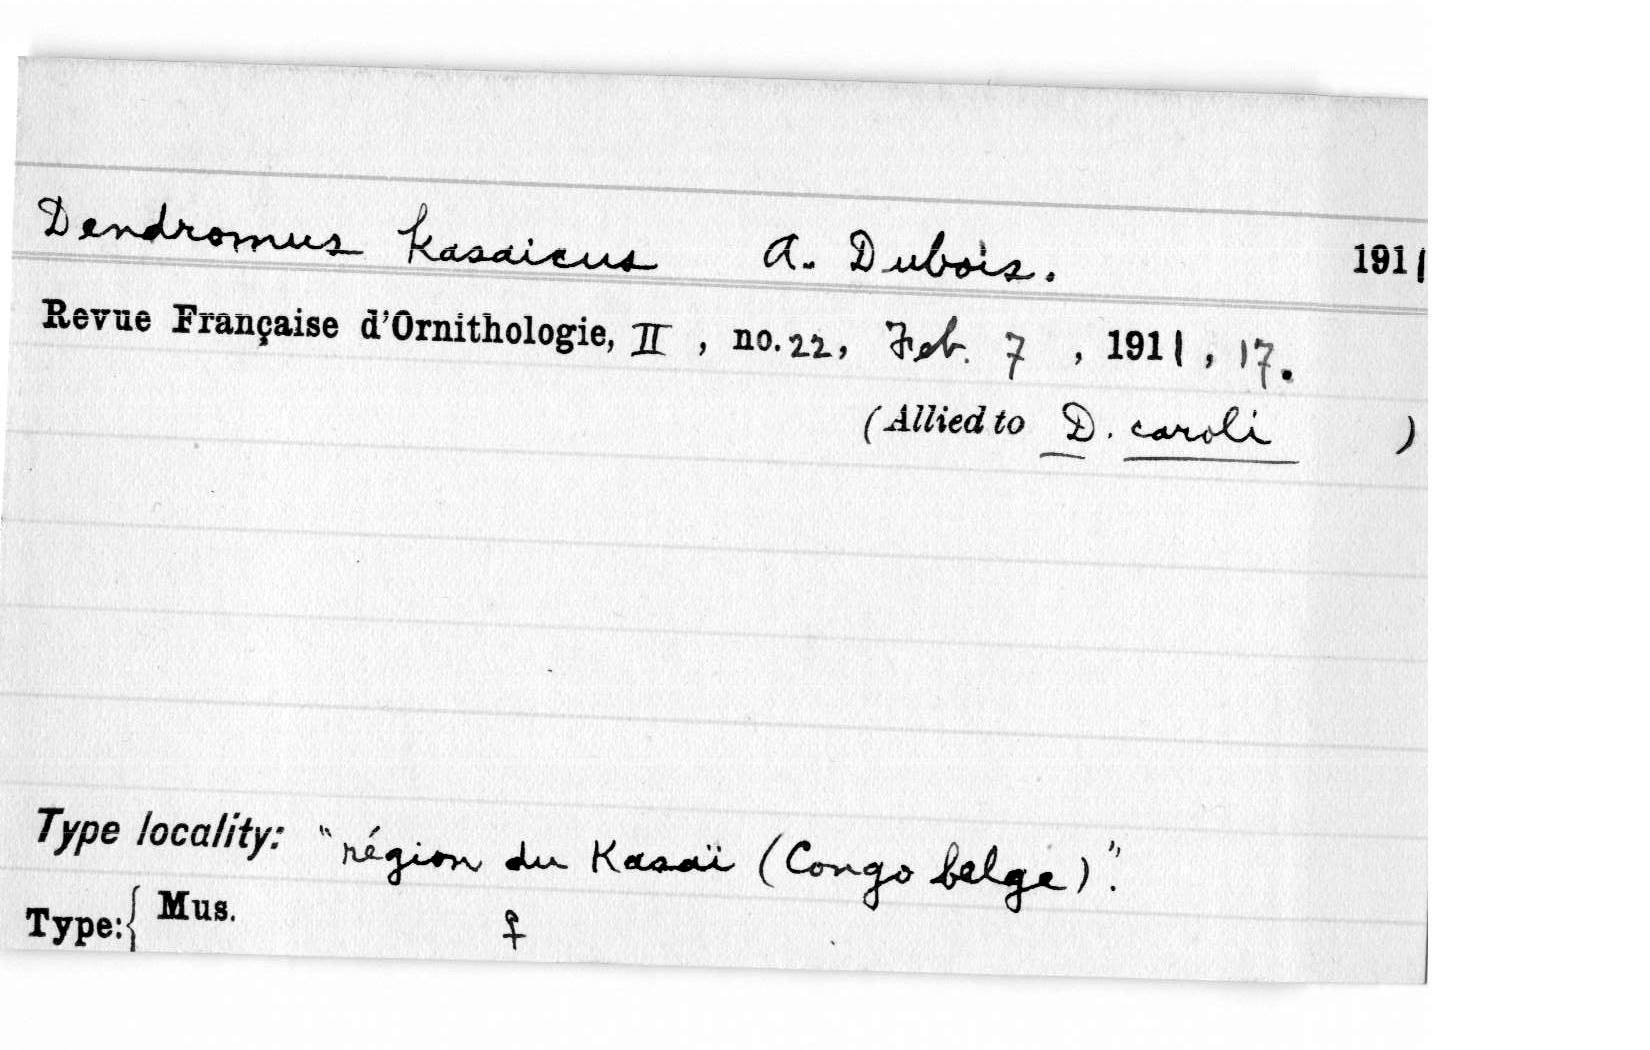 Dendromus kasaicus A. Dubois. 1911
Revue Française d'Ornithologie, II, no. 22, Feb. 7, 1911, 17.
(Allied to D. caroli )
Type locality: "région du Kasaï (Congo belge)".
Type: { Mus. ♀